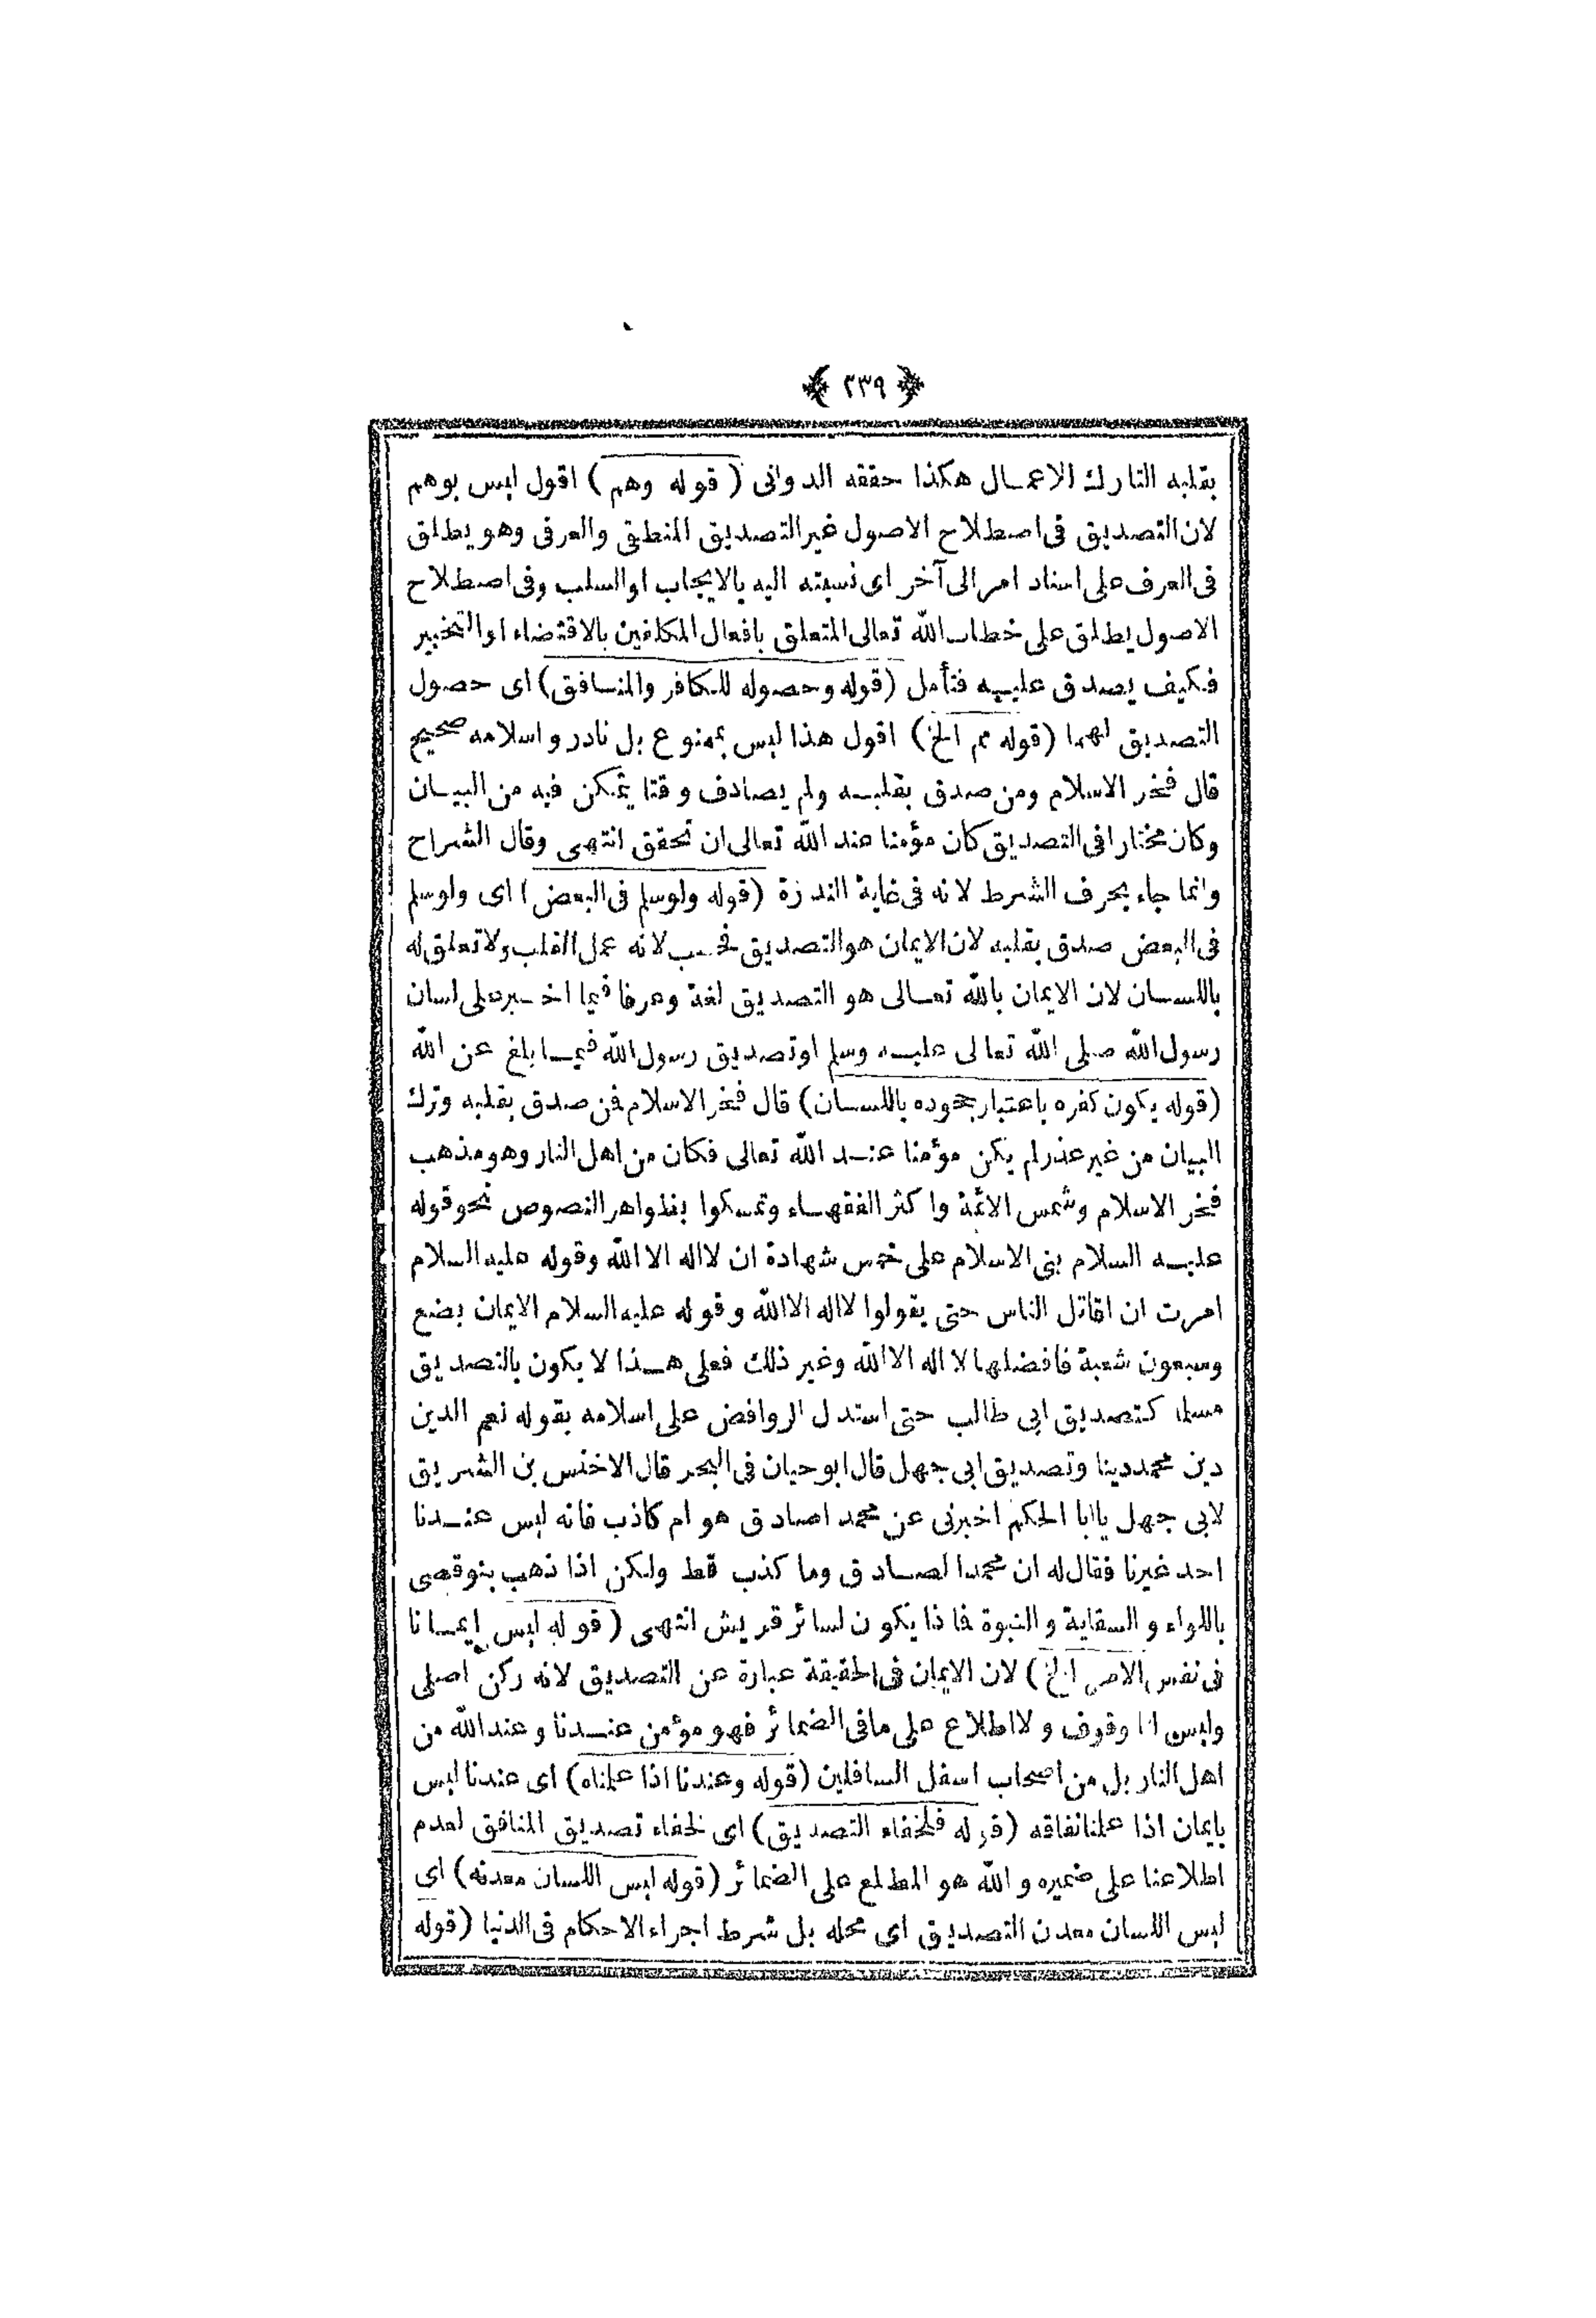 ﴿ ٢٣٩ ﴾
بقلبه التارك الاعمال هكذا حققه الدوانى (قوله وهم) اقول ليس بوهم
لان التصديق فى اصطلاح الاصول غير التصديق المنطقى والعرفى وهو يطلق
فى العرف على اسناد امر الى آخر اى نسبته اليه بالايجاب او السلب وفى اصطلاح
الاصول يطلق على خطاب الله تعالى المتعلق بافعال المكلفين بالاقتضاء او التخيير
فكيف يصدق عليه فتأمل (قوله وحصوله للكافر والمنافق) اى حصول
التصديق لهما (قوله مم الخ) اقول هذا ليس بممنوع بل نادر واسلامه صحيح
قال فخر الاسلام ومن صدق بقلبه ولم يصادف وقتا يتمكن فيه من البيان
وكان مختارا فى التصديق كان مؤمنا عند الله تعالى ان تحقق انتهى وقال الشراح
وانما جاء بحرف الشرط لانه فى غاية الندرة (قوله ولو سلم فى البعض) اى ولو سلم
فى البعض صدق بقلبه لان الايمان هو التصديق فحسب لانه عمل القلب ولا تعلق له
باللسان لان الايمان بالله تعالى هو التصديق لغة وعرفا فيما اخبر على لسان
رسول الله صلى الله تعالى عليه وسلم او تصديق رسول الله فيما بلغ عن الله
(قوله يكون كفره باعتبار جحوده باللسان) قال فخر الاسلام فمن صدق بقلبه وترك
البيان من غير عذر لم يكن مؤمنا عند الله تعالى فكان من اهل النار وهو مذهب
فخر الاسلام وشمس الائمة واكثر الفقهاء وتمسكوا بظواهر النصوص نحو قوله
عليه السلام بنى الاسلام على خمس شهادة ان لا اله الا الله وقوله عليه السلام
امرت ان اقاتل الناس حتى يقولوا لا اله الا الله وقوله عليه السلام الايمان بضع
وسبعون شعبة فافضلها لا اله الا الله وغير ذلك فعلى هذا لا يكون بالتصديق
مسلما كتصديق ابى طالب حتى استدل الروافض على اسلامه بقوله نعم الدين
دين محمد دينا وتصديق ابى جهل قال ابو حيان فى البحر قال الاخنس بن الشريق
لابى جهل يا ابا الحكم اخبرنى عن محمد اصادق هو ام كاذب فانه ليس عندنا
احد غيرنا فقال له ان محمدا لصادق وما كذب قط ولكن اذا ذهب بنو قصى
باللواء والسقاية والنبوة فماذا يكون لسائر قريش انتهى (قوله ليس ايمانا
فى نفس الامر الخ) لان الايمان فى الحقيقة عبارة عن التصديق لانه ركن اصلى
وليس لنا وقوف ولا اطلاع على ما فى الضمائر فهو مؤمن عندنا وعند الله من
اهل النار بل من اصحاب اسفل السافلين (قوله وعندنا اذا علمناه) اى عندنا ليس
بايمان اذا علمنا نفاقه (قوله فلخفاء التصديق) اى لخفاء تصديق المنافق لعدم
اطلاعنا على ضميره والله هو المطلع على الضمائر (قوله ليس اللسان معدنه) اى
ليس اللسان معدن التصديق اى محله بل شرط اجراء الاحكام فى الدنيا (قوله